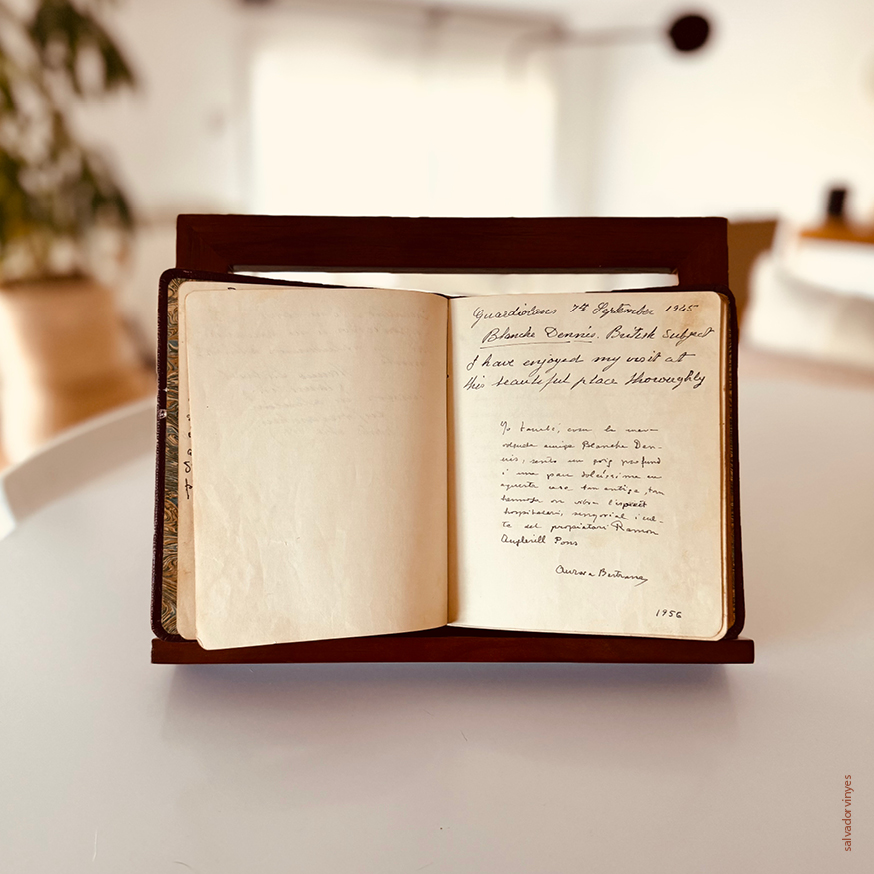 7th September 1945
Blanche Dennis. British Subject
I have enjoyed my visit at
this beautiful place thoroughly
Yo també, com la meva
volguda amiga Blanche Den-
nis, sento un goig profund
i una pau dolcíssima en
aquesta casa tan antiga, tan
hermosa on vibra l'esperit
hospitalari, senyorial i cul-
te del propietari Ramon
Pons
Aurora Bertrana
1956
salvador vinyes